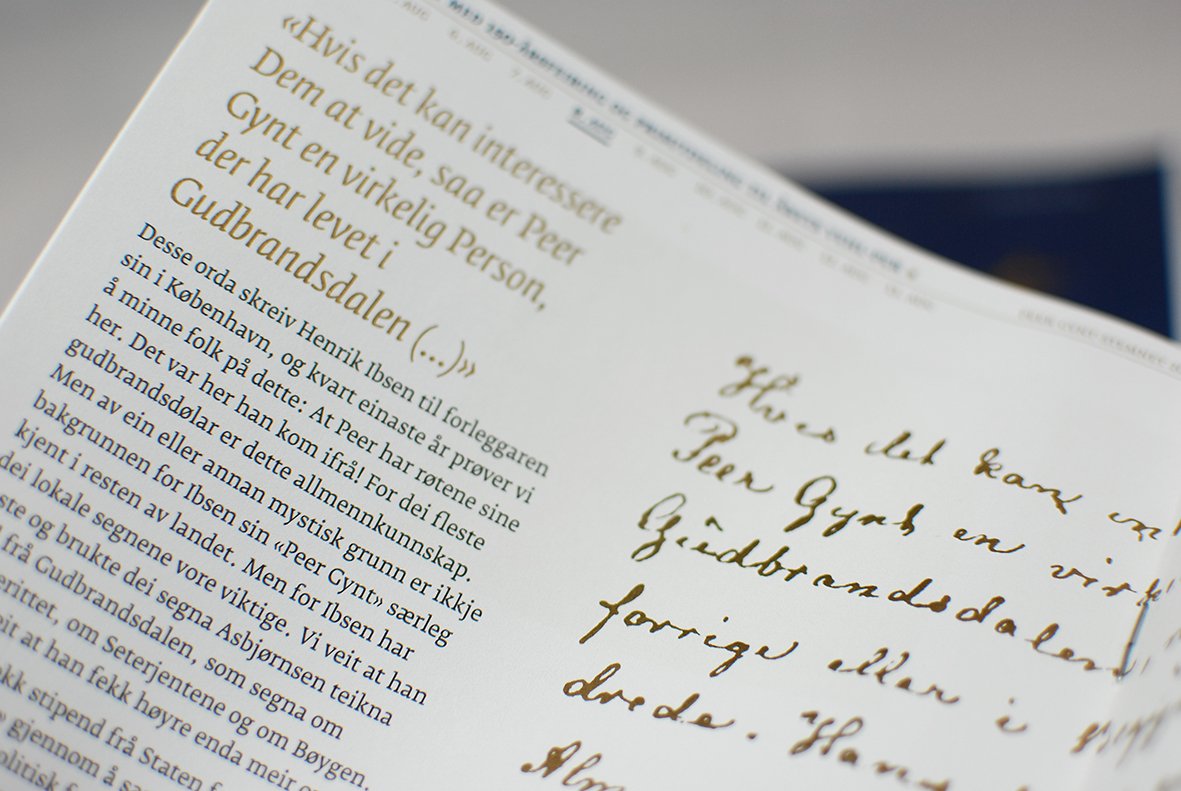 6. AUG
7. AUG
«Hvis det kan interessere
Dem at vide, saa er Peer
Gynt en virkelig Person,
der har levet i
Gudbrandsdalen (...)»
Desse orda skreiv Henrik Ibsen til forleggaren
sin i København, og kvart einaste år prøver vi
å minne folk på dette: At Peer har røtene sine
her. Det var her han kom ifrå! For dei fleste
gudbrandsdølar er dette allmennkunnskap.
Men av ein eller annan mystisk grunn er ikkje
bakgrunnen for Ibsen sin «Peer Gynt» særleg
kjent i resten av landet. Men for Ibsen har
dei lokale segnene vore viktige. Vi veit at han
og brukte dei segna Asbjørnsen teikna
frå Gudbrandsdalen, som segna om
om Seterjentene og om Bøygen.
at han fekk høyre enda meir
stipend frå Staten
gjennom å
Hvis det kan
Peer Gynt en
Gudbrandsdalen
forrige eller i
drede. Hans